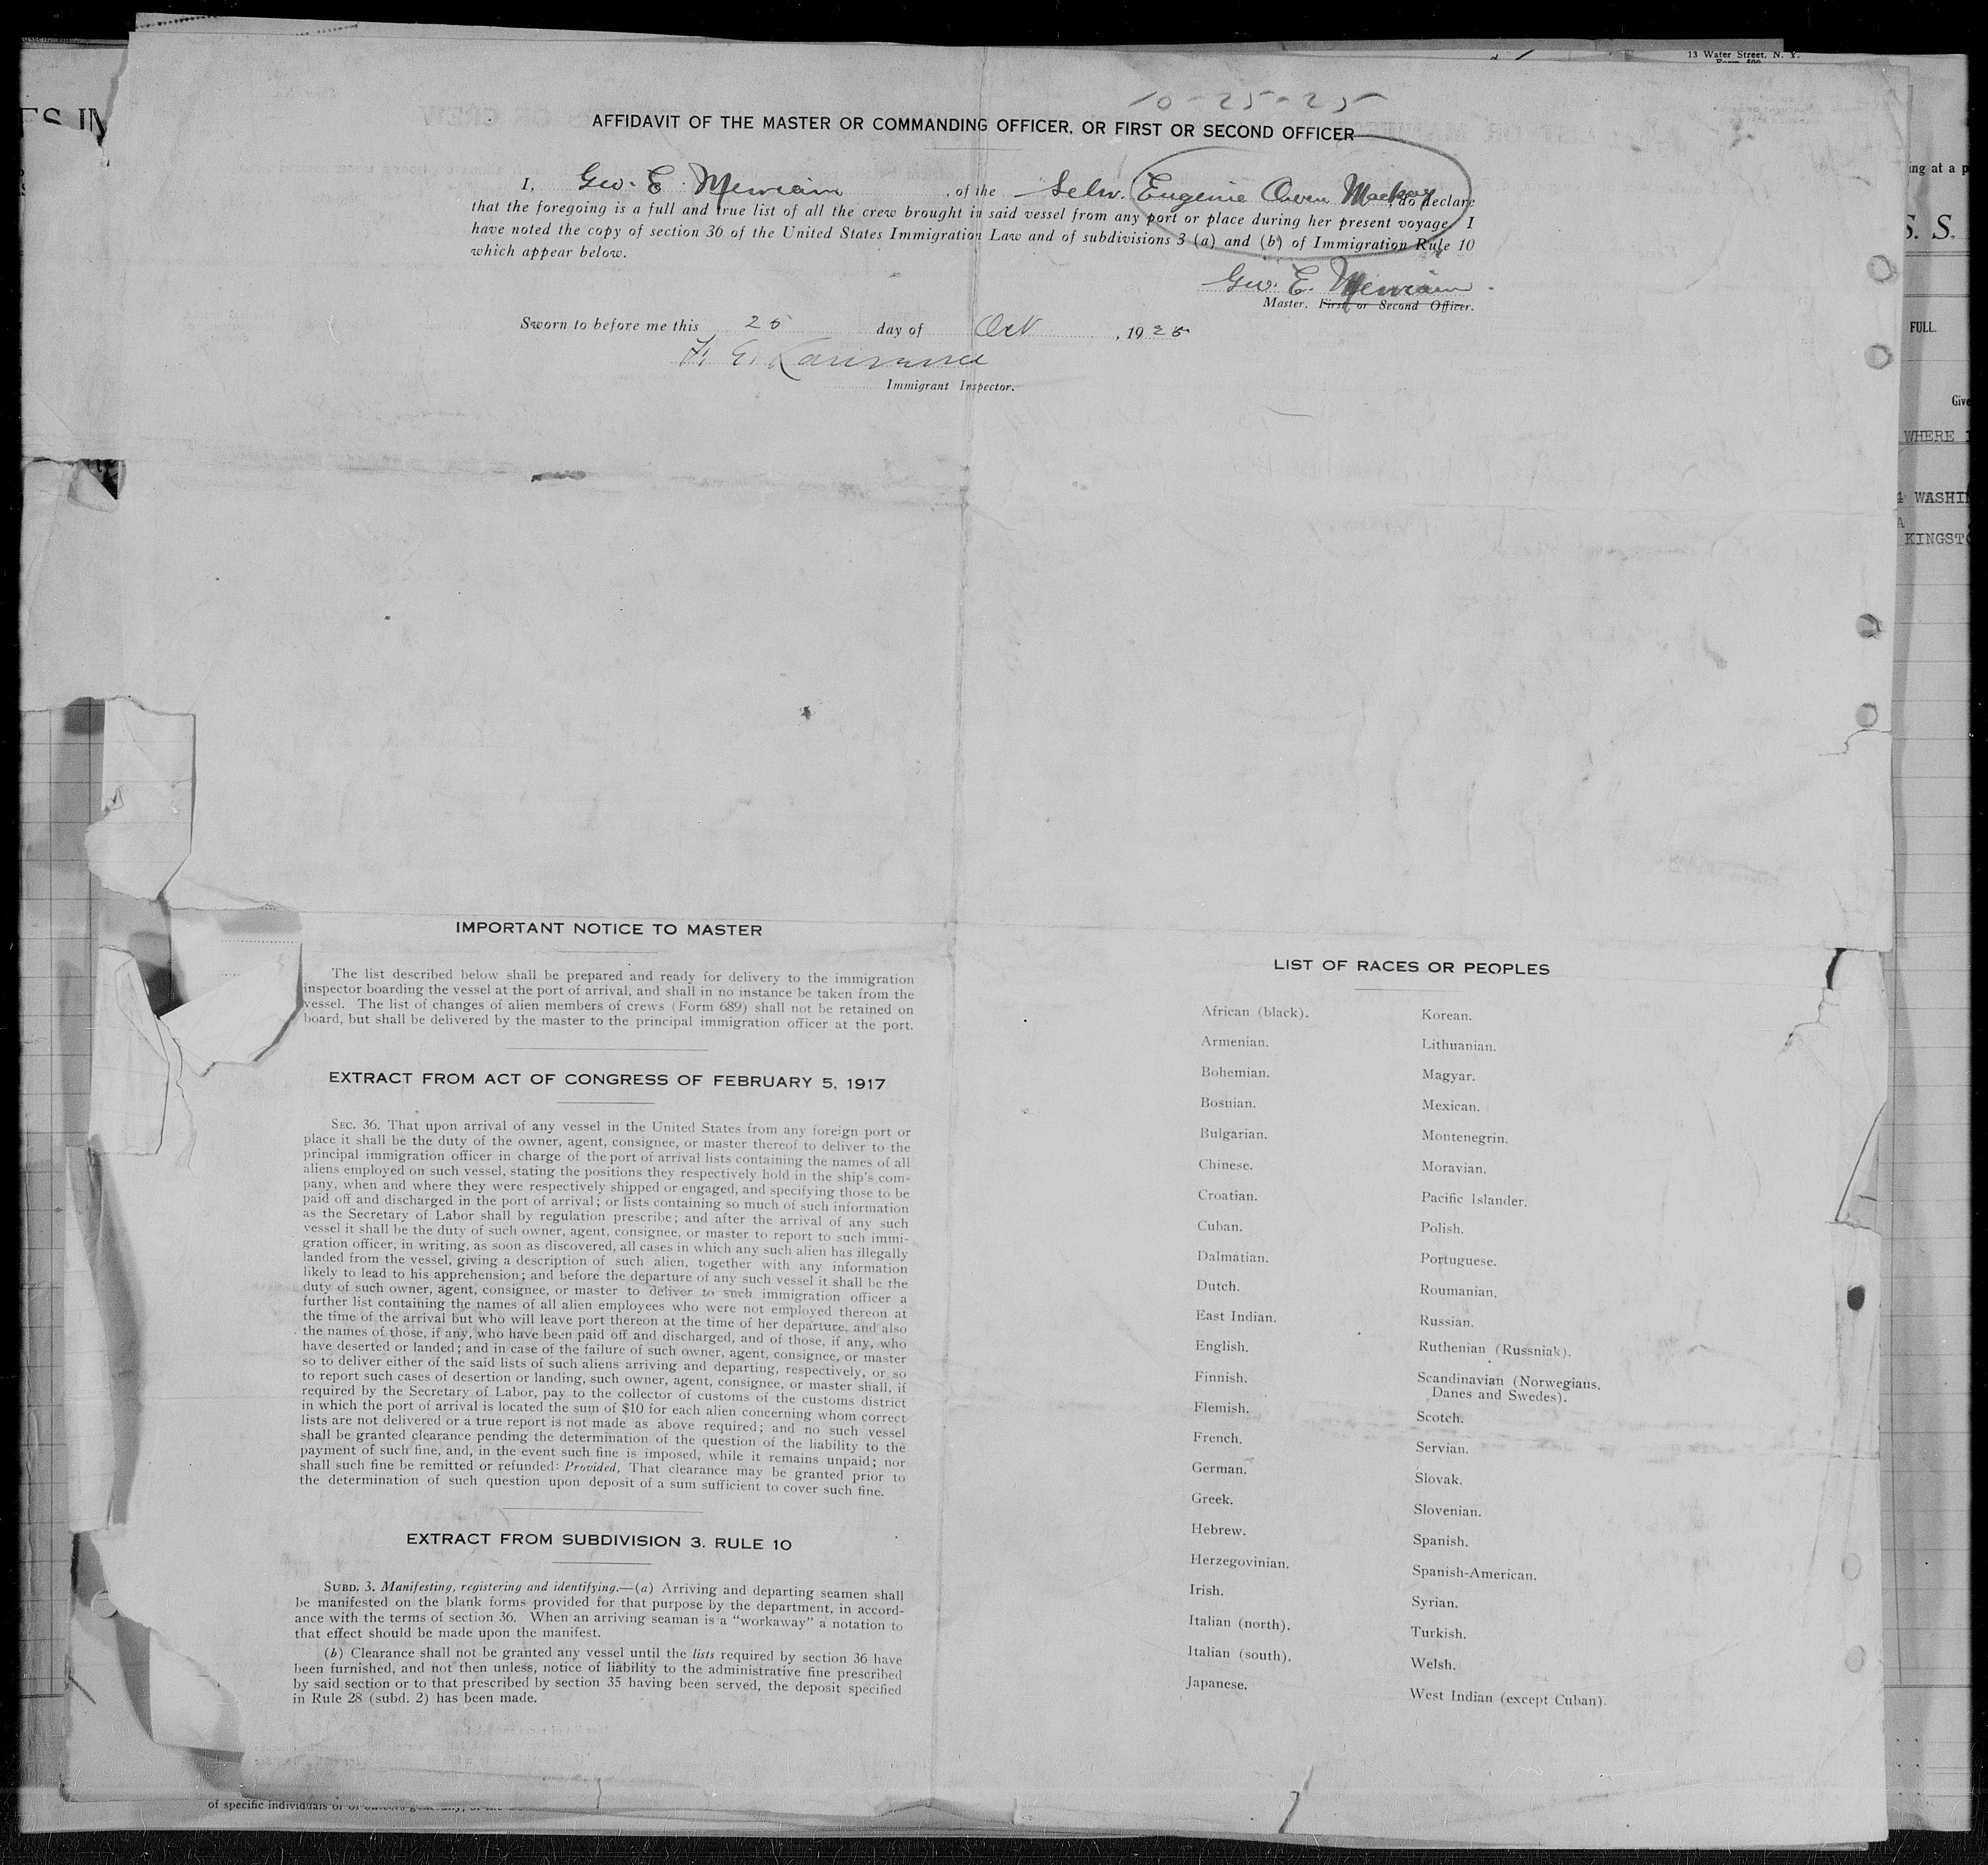 13 Water Street, N. Y.
10-25-25
AFFIDAVIT OF THE MASTER OR COMMANDING OFFICER, OR FIRST OR SECOND OFFICER
I, Geo. E. Merriam, of the Schr. Eugenie Owen Mackay, do declare
that the foregoing is a full and true list of all the crew brought in said vessel from any port or place during her present voyage. I
have noted the copy of section 36 of the United States Immigration Law and of subdivisions 3 (a) and (b) of Immigration Rule 10
which appear below.
Geo. E. Merriam
Master, First or Second Officer.
Sworn to before me this 25 day of Oct, 1925
Immigrant Inspector.
IMPORTANT NOTICE TO MASTER
The list described below shall be prepared and ready for delivery to the immigration
inspector boarding the vessel at the port of arrival, and shall in no instance be taken from the
vessel. The list of changes of alien members of crews (Form 689) shall not be retained on
board, but shall be delivered by the master to the principal immigration officer at the port.
EXTRACT FROM ACT OF CONGRESS OF FEBRUARY 5, 1917
SEC. 36. That upon arrival of any vessel in the United States from any foreign port or
place it shall be the duty of the owner, agent, consignee, or master thereof to deliver to the
principal immigration officer in charge of the port of arrival lists containing the names of all
aliens employed on such vessel, stating the positions they respectively hold in the ship's com-
pany, when and where they were respectively shipped or engaged, and specifying those to be
paid off and discharged in the port of arrival; or lists containing so much of such information
as the Secretary of Labor shall by regulation prescribe; and after the arrival of any such
vessel it shall be the duty of such owner, agent, consignee, or master to report to such immi-
gration officer, in writing, as soon as discovered, all cases in which any such alien has illegally
landed from the vessel, giving a description of such alien, together with any information
likely to lead to his apprehension; and before the departure of any such vessel it shall be the
duty of such owner, agent, consignee, or master to deliver to such immigration officer a
further list containing the names of all alien employees who were not employed thereon at
the time of the arrival but who will leave port thereon at the time of her departure, and also
the names of those, if any, who have been paid off and discharged, and of those, if any, who
have deserted or landed; and in case of the failure of such owner, agent, consignee, or master
so to deliver either of the said lists of such aliens arriving and departing, respectively, or so
to report such cases of desertion or landing, such owner, agent, consignee, or master shall, if
required by the Secretary of Labor, pay to the collector of customs of the customs district
in which the port of arrival is located the sum of $10 for each alien concerning whom correct
lists are not delivered or a true report is not made as above required; and no such vessel
shall be granted clearance pending the determination of the question of the liability to the
payment of such fine, and, in the event such fine is imposed, while it remains unpaid; nor
shall such fine be remitted or refunded: Provided, That clearance may be granted prior to
the determination of such question upon deposit of a sum sufficient to cover such fine.
EXTRACT FROM SUBDIVISION 3. RULE 10
SUBD. 3. Manifesting, registering and identifying.—(a) Arriving and departing seamen shall
be manifested on the blank forms provided for that purpose by the department, in accord-
ance with the terms of section 36. When an arriving seaman is a "workaway" a notation to
that effect should be made upon the manifest.
(b) Clearance shall not be granted any vessel until the lists required by section 36 have
been furnished, and not then unless, notice of liability to the administrative fine prescribed
by said section or to that prescribed by section 35 having been served, the deposit specified
in Rule 28 (subd. 2) has been made.
LIST OF RACES OR PEOPLES
African (black).
Armenian.
Bohemian.
Bosnian.
Bulgarian.
Chinese.
Croatian.
Cuban.
Dalmatian.
Dutch.
East Indian.
English.
Finnish.
Flemish.
French.
German.
Greek.
Hebrew.
Herzegovinian.
Irish.
Italian (north).
Italian (south).
Japanese.
Korean.
Lithuanian.
Magyar.
Mexican.
Montenegrin.
Moravian.
Pacific Islander.
Polish.
Portuguese.
Roumanian.
Russian.
Ruthenian (Russniak).
Scandinavian (Norwegians,
Danes and Swedes).
Scotch.
Servian.
Slovak.
Slovenian.
Spanish.
Spanish-American.
Syrian.
Turkish.
Welsh.
West Indian (except Cuban).
ing at a
S. S.
FULL.
Give
WHERE
WASHI
KINGST
of specific individuals or